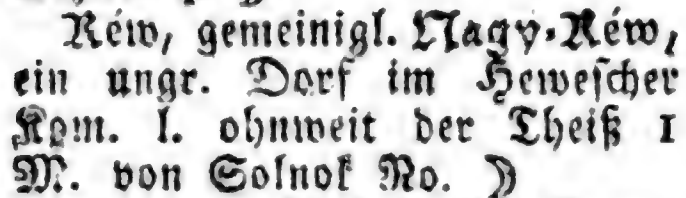 Réw, gemeinigl. Nagy-Réw,
ein ungr. Dorf im Heweſcher
Kom. l. ohnweit der Theiß 1
M. von Solnok No. ☽